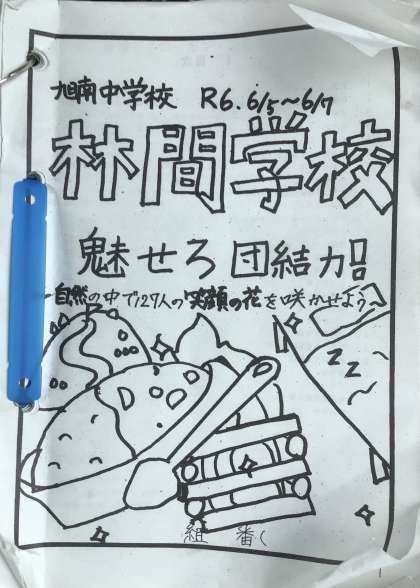 旭南中学校 R6. 6/5~6/7
林間学校
魅せろ団結力!!
~自然の中で127人の笑顔の花を咲かせよう~
ZZ
組 番